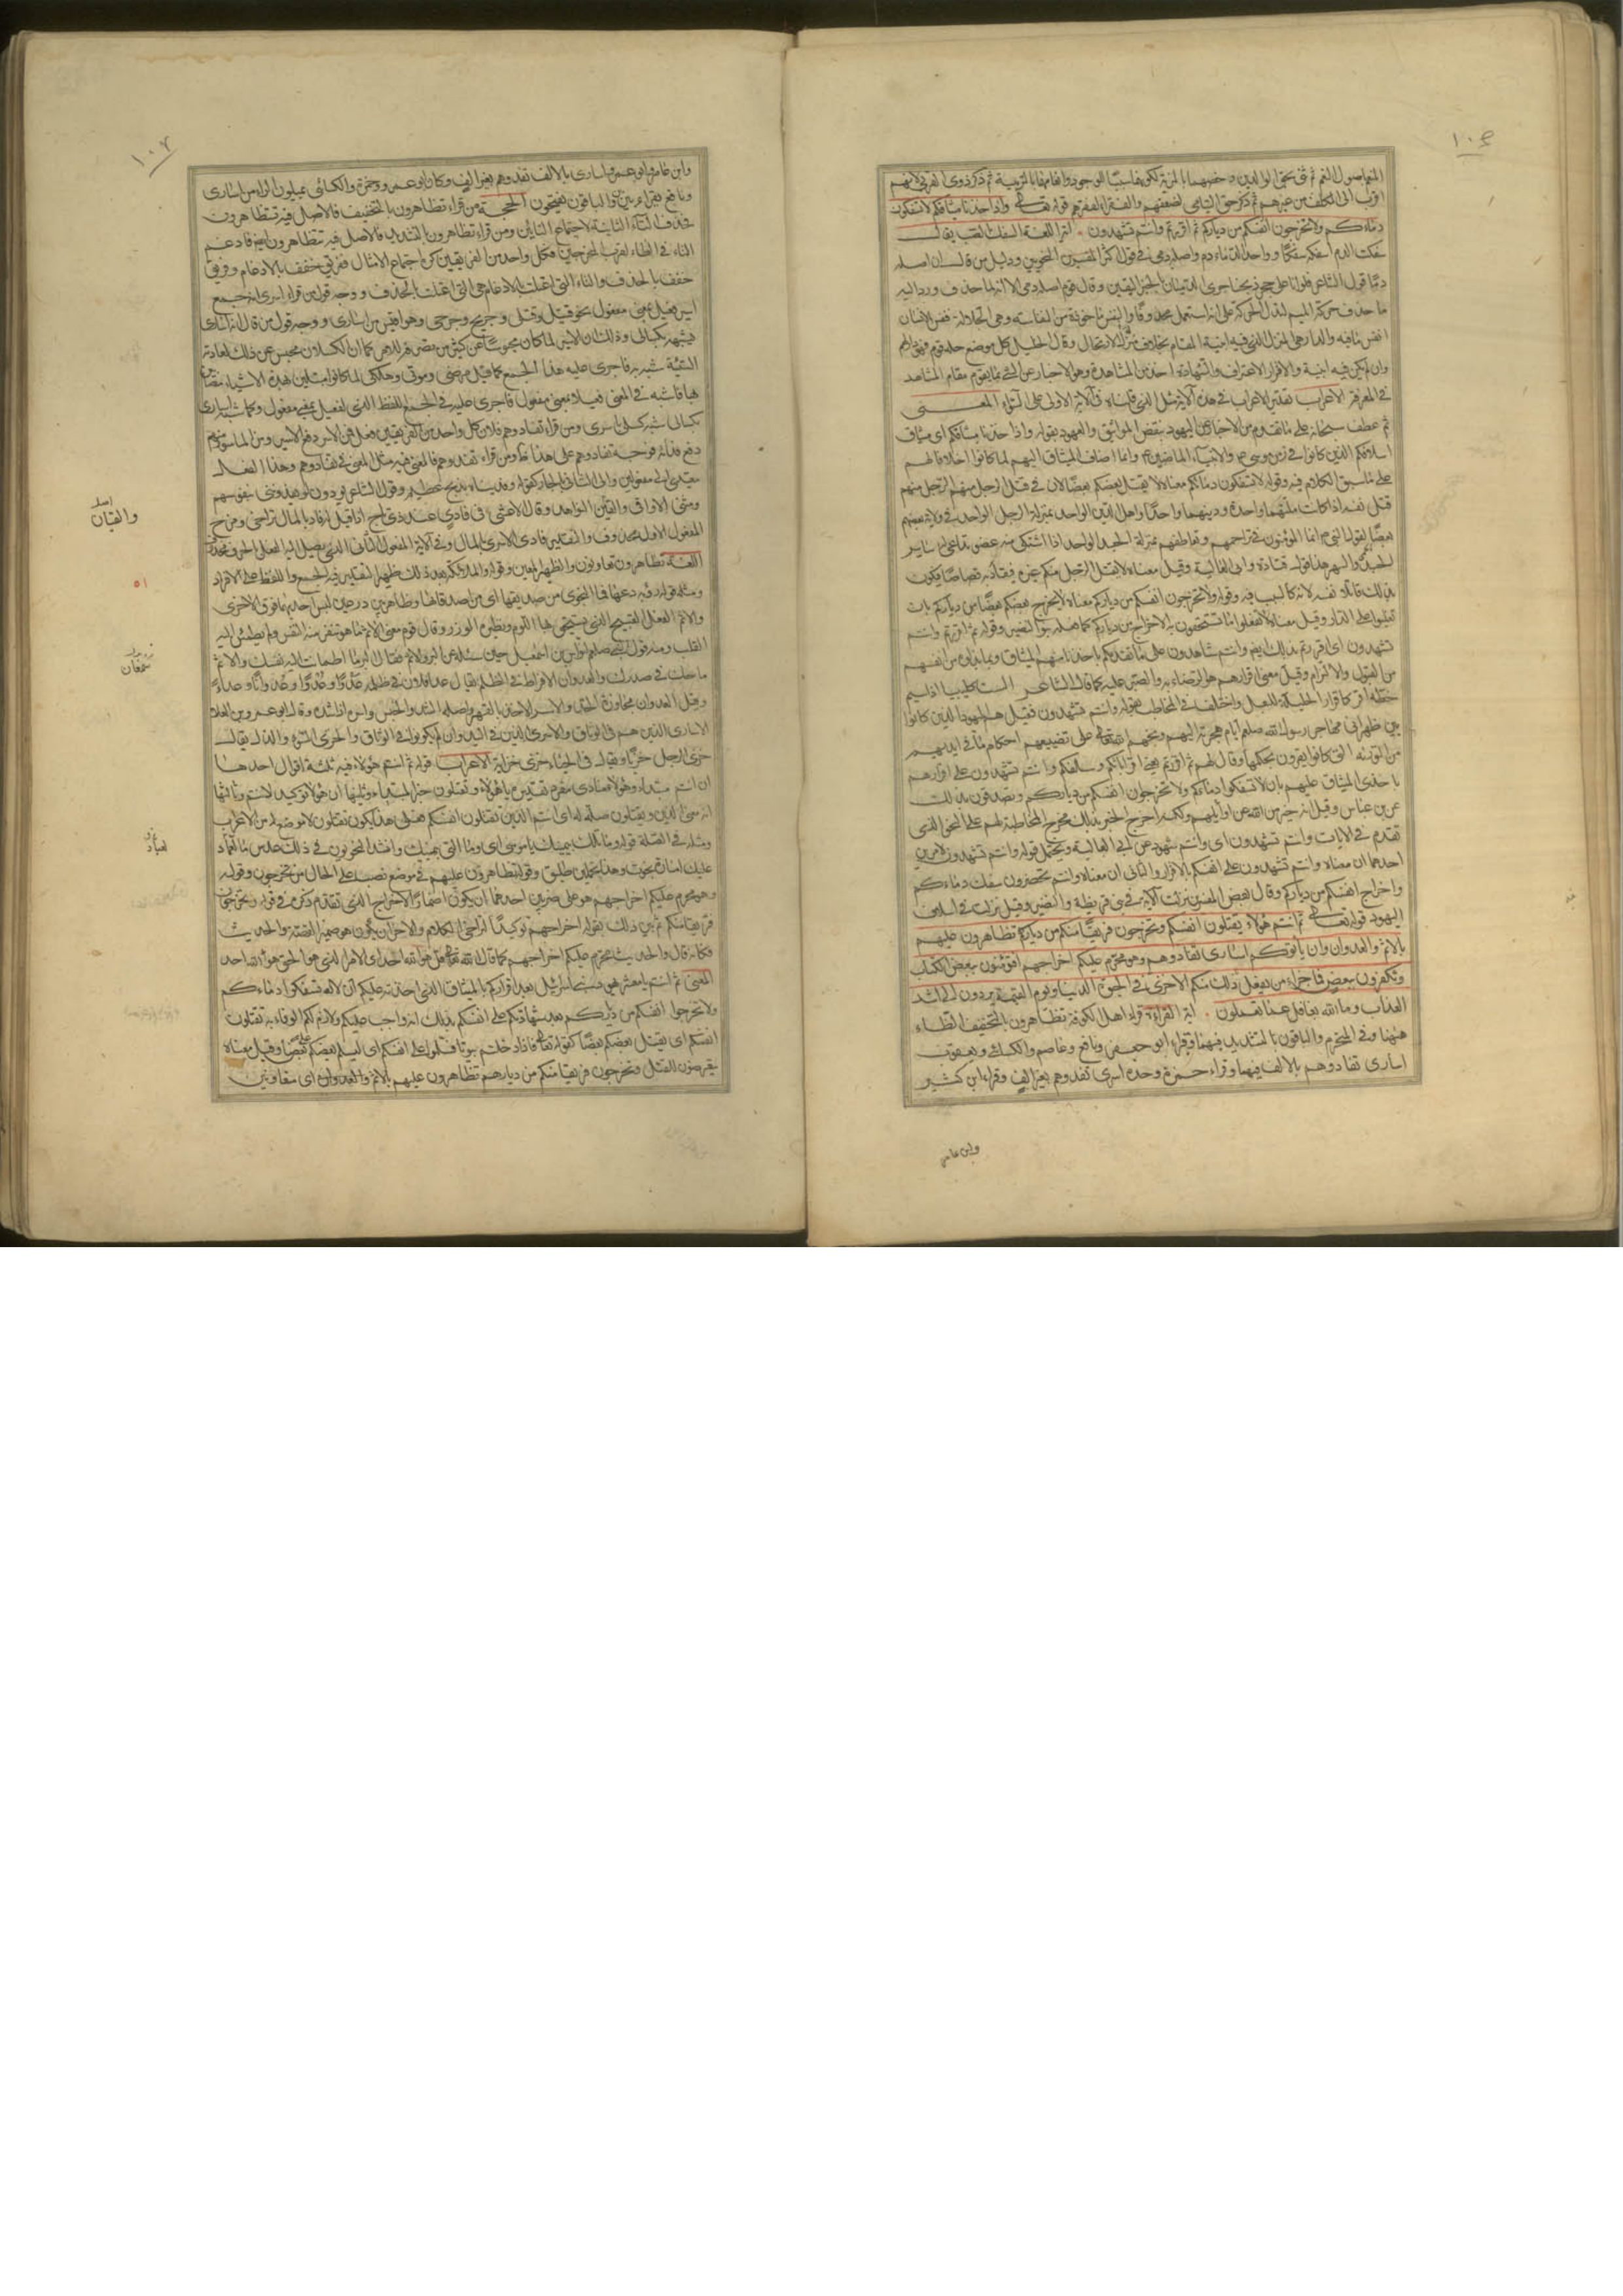 ١٠٤
ثم ذكر حق اليتامى لضعفهم والفقراء لفقرهم قوله تعالى واذ اخذنا ميثاقكم لا تسفكون
دماءكم ولا تخرجون انفسكم من دياركم ثم اقررتم وانتم تشهدون اللغة السفك الصب يقال
سفكت الدم اسفكه سفكا وواحد الدماء دم واصله دمي في قول اكثر النحويين ودليل من قال ان اصله
دمي قول الشاعر فلو انا على حجر ذبحنا جرى الدميان بالخبر اليقين وقال قوم اصله دمي الا انه لما حذف ورد اليه
ما حذف حركة الميم لتدل الحركة على انه استعمل محذوفا والنفس ماخوذة من النفاسة وهي الجلالة فنفس الانسان
انفس ما فيه والدار هي المنزل الذي فيه ابنية المقام بخلاف منزل الارتحال وقال الخليل كل موضع حله قوم فهو دار لهم
وان لم يكن فيه ابنية والاقرار الاعتراف والشهادة اخذ من المشاهدة وهو الاخبار عن الشيء بما يقوم مقام المشاهدة
في المعرفة الاعراب تقدير الاعراب في هذه الآية مثل الذي قلناه في الآية الاولى على السواء المعنى
ثم عطف سبحانه على ما تقدم من الاخبار عن اليهود بنقض المواثيق والعهود بقوله واذ اخذنا ميثاقكم اى ميثاق
اسلافكم الذين كانوا في زمن موسى والانبياء الماضين وانما اضاف الميثاق اليهم لما كانوا اخلافا لهم
على ما سبق الكلام فيه وقوله لا تسفكون دماءكم معناه لا يقتل بعضكم بعضا لان في قتل الرجل منهم الرجل منهم
قتل نفسه اذا كانت ملتهما واحدة ودينهما واحدا واهل الدين الواحد بمنزلة الرجل الواحد في ولاية بعضهم
بعضا لقول النبي انما المؤمنون في تراحمهم وتعاطفهم بمنزلة الجسد الواحد اذا اشتكى منه عضو تداعى له سائر
الجسد بالحمى والسهر هذا قول قتادة وابى العالية وقيل معناه لا يقتل الرجل منكم غيره فيقاد به قصاصا فيكون
بذلك قاتلا لنفسه لانه كالسبب فيه وقوله ولا تخرجون انفسكم من دياركم معناه لا يخرج بعضكم بعضا من دياركم بان
تغلبوا على الدار وقيل معناه لا تفعلوا ما تستحقون به الاخراج من دياركم كما فعله بنو النضير وقوله ثم اقررتم وانتم
تشهدون اى اقررتم بذلك
من القبول والالتزام وقيل معنى اقرارهم هو الرضاء به والصبر عليه كما قال الشاعر الست كليبيا اذا سيم
خطة اقر كاقرار الحليلة للبعل واختلف في المخاطب بقوله وانتم تشهدون فقيل هم اليهود الذين كانوا
بين ظهراني مهاجر رسول الله صلعم ايام هجرته اليهم وبخهم الله تعالى على تضييعهم احكام ما في ايديهم
من التورية التي كانوا يقرون بحكمها وقال لهم ثم اقررتم يعنى اقر اوائلكم وسلفكم وانتم تشهدون على اقرارهم
باخذى الميثاق عليهم بان لا تسفكوا دماءكم ولا تخرجون انفسكم من دياركم وتصدقون بذلك
عن ابن عباس وقيل انه خبر من الله عن اوائلهم ولكنه اخرج الخبر بذلك مخرج المخاطبة لهم على النحو الذي
تقدم في الايات وانتم تشهدون اى وانتم شهود عن ابي العالية ويحتمل قوله وانتم تشهدون امرين
احدهما ان معناه وانتم تشهدون على انفسكم بالاقرار والثاني ان معناه وانتم تحضرون سفك دماءكم
واخراج انفسكم من دياركم وقال بعض المفسرين نزلت الآية في بني قريظة والنضير وقيل نزلت في اسلاف
اليهود قوله تعالى ثم انتم هؤلاء تقتلون انفسكم وتخرجون فريقا منكم من دياركم تظاهرون عليهم
بالاثم والعدوان وان ياتوكم اسارى تفادوهم وهو محرم عليكم اخراجهم افتؤمنون ببعض الكتاب
وتكفرون ببعض فما جزاء من يفعل ذلك منكم الا خزي في الحيوة الدنيا ويوم القيمة يردون الى اشد
العذاب وما الله بغافل عما تعملون آية القراءة قراء اهل الكوفة تظاهرون بالتخفيف الظاء
ههنا وفي التحريم والباقون بالتشديد فيهما وقراء ابو جعفر ونافع وعاصم والكسائى ويعقوب
اسارى تفادوهم بالالف فيهما وقراء حمزة وحده اسرى تفدوهم بغير الف وقراء ابن كثير
وابن عامر
وابن عامر وابو عمرو اسارى بالالف تفدوهم بغير الف وكان ابو عمرو وحمزة والكسائى يميلون الراء من اسارى
ونافع يقراء بين بين والباقون يفتحون الحجة من قراء تظاهرون بالتخفيف فالاصل فيه تتظاهرون
فحذف التاء الثانية لاجتماع التائين ومن قراء تظاهرون بالتشديد فالاصل فيه تتظاهرون ايضا فادغم
التاء في الظاء لقرب المخرجين وكل واحد من الفريقين كره اجتماع الامثال ففريق خفف بالادغام وفريق
خفف بالحذف والتاء التي اعتلت بالادغام هى التي اعتلت بالحذف ووجه قول من قراء اسرى انه جمع
اسير فعيل بمعنى مفعول نحو قتيل وقتلى وجريح وجرحى وهو اقيس من اسارى ووجه قول من قال اسارى
انه شبهه بكسالى وذلك ان الاسير لما كان محبوسا عن كثير من تصرفه للاسر كما ان الكسلان محتبس عن ذلك لعادته
السيئة شبه به فاجرى عليه هذا الجمع كما قيل مرضى وموتى وهلكى لما كانوا مبتلين بهذه الاشياء مصابين
بها فاشبه في المعنى فعيلا بمعنى مفعول فاجرى عليه في الجمع اللفظ الذي لفعيل بمعنى مفعول وكما شبه اسارى
بكسالى شبه كسلى باسرى ومن قراء تفادوهم فلان لكل واحد من الفريقين فعل فمن الاسر دفع الاسير ومن الماسور منهم
دفع فدائه فوجه تفادوهم على هذا ظاهر ومن قراء تفدوهم فالمعنى فيه مثل المعنى في تفادوهم وهذا الفعل
يتعدى الى مفعولين والى الثاني بالجار كقوله وفديناه بذبح عظيم وقول الشاعر يودون لو يفدونني بنفوسهم
ومثنى الاواقي والقيان النواهد
المفعول الاول محذوف والتقدير فادى الاسرى بالمال وفي الآية المفعول الثاني الذي يصل اليه الفعل بالحرف محذوف
اللغة تظاهرون تعاونون والظهير المعين وقوله والملائكة بعد ذلك ظهير التقدير فيه الجمع واللفظ على الافراد
والاثم الفعل القبيح الذي يستحق بها اللوم ونظيره الوزر وقال قوم معنى الاثم هو ما تنفر منه النفس ولم يطمئن اليه
القلب ومنه قول النبي صلعم لنواس بن سمعان حين سئله عن البر والاثم فقال البر ما اطمأنت اليه نفسك والاثم
ما حك في صدرك والعدوان الافراط في الظلم يقال عدا فلان في ظلمه عدوا وعدوا وعدوانا وعداء
وقيل العدوان مجاوزة الحد والاسر الاخذ بالقهر واصله الشد والحبس واسره اذا شده وقال ابو عمرو بن العلا
الاسارى الذين هم في الوثاق والاسرى الذين في اليد وان لم يكونوا في الوثاق والخزى السوء والذل يقال
خزى الرجل خزيا ويقال في الحياء خزى خزاية الاعراب قوله ثم انتم هؤلاء فيه ثلثة اقوال احدها
ان انتم مبتداء وهؤلاء منادى مفرد تقديره يا هؤلاء وتقتلون خبر المبتداء وثانيها ان هؤلاء توكيد لانتم وثالثها
انه بمعنى الذين وتقتلون صلة له اى انتم الذين تقتلون انفسكم فعلى هذا يكون تقتلون لا موضع له من الاعراب
ومثله في الصلة قوله وما تلك بيمينك يا موسى اى وما التي بيمينك وانشد النحويون في ذلك عدس ما لعباد
عليك امارة نجوت وهذا تحملين طليق وقوله تظاهرون عليهم في موضع نصب على الحال من تخرجون وقوله
وهو محرم عليكم اخراجهم هو على ضربين احدهما ان يكون اضمار الاخراج الذي تقدم ذكره في قوله وتخرجون
فريقا منكم ثم بين ذلك بقوله اخراجهم توكيدا لتراخى الكلام والاخر ان يكون هو ضمير القصة والحديث
وكانه قال والحديث محرم عليكم اخراجهم كما قال الله تعالى قل هو الله احد اى الامر الذي هو الحق هو الله احد
المعنى ثم انتم يا معشر يهود بنى اسرائيل بعد اقراركم بالميثاق الذي اخذته عليكم ان لا تسفكوا دماءكم
ولا تخرجوا انفسكم من دياركم بعد شهادتكم على انفسكم بذلك انه واجب عليكم ولازم لكم الوفاء به تقتلون
انفسكم اى يقتل بعضكم بعضا كقوله تعالى فاذا دخلتم بيوتا فسلموا على انفسكم اى ليسلم بعضكم على بعض وقيل معناه
تعرضون للقتل وتخرجون فريقا منكم من ديارهم تظاهرون عليهم بالاثم والعدوان اى متعاونين
والقيان
سمعان
لعباد